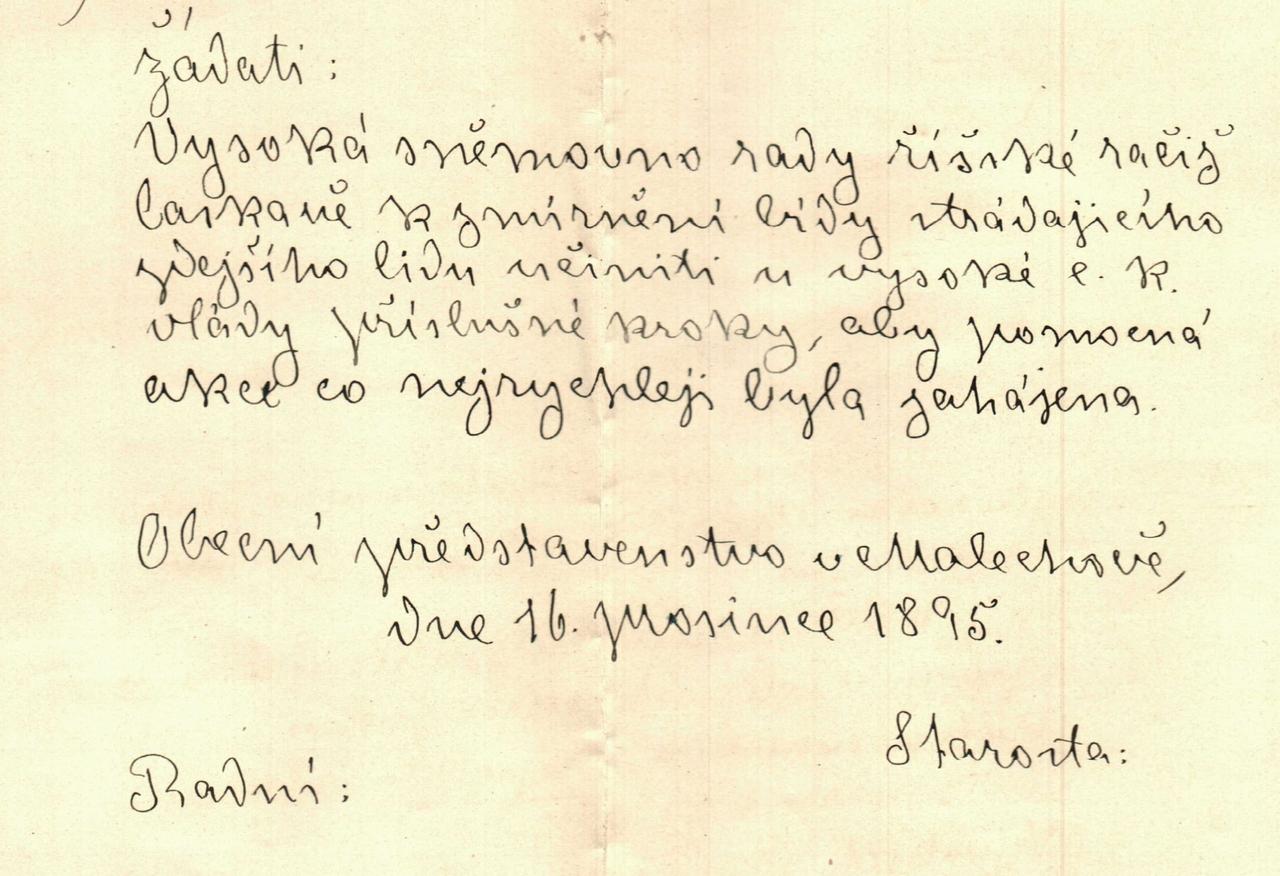 žádati:
Vysoká sněmovno rady říšské račiž
laskavě k zmírnění bídy strádajícího
zdejšího lidu učiniti u vysoké c. k.
vlády příslušné kroky, aby pomocná
akce co nejrychleji byla zahájena.
Obecní představenstvo v Malechově,
dne 16. prosince 1895.
Starosta:
Radní: